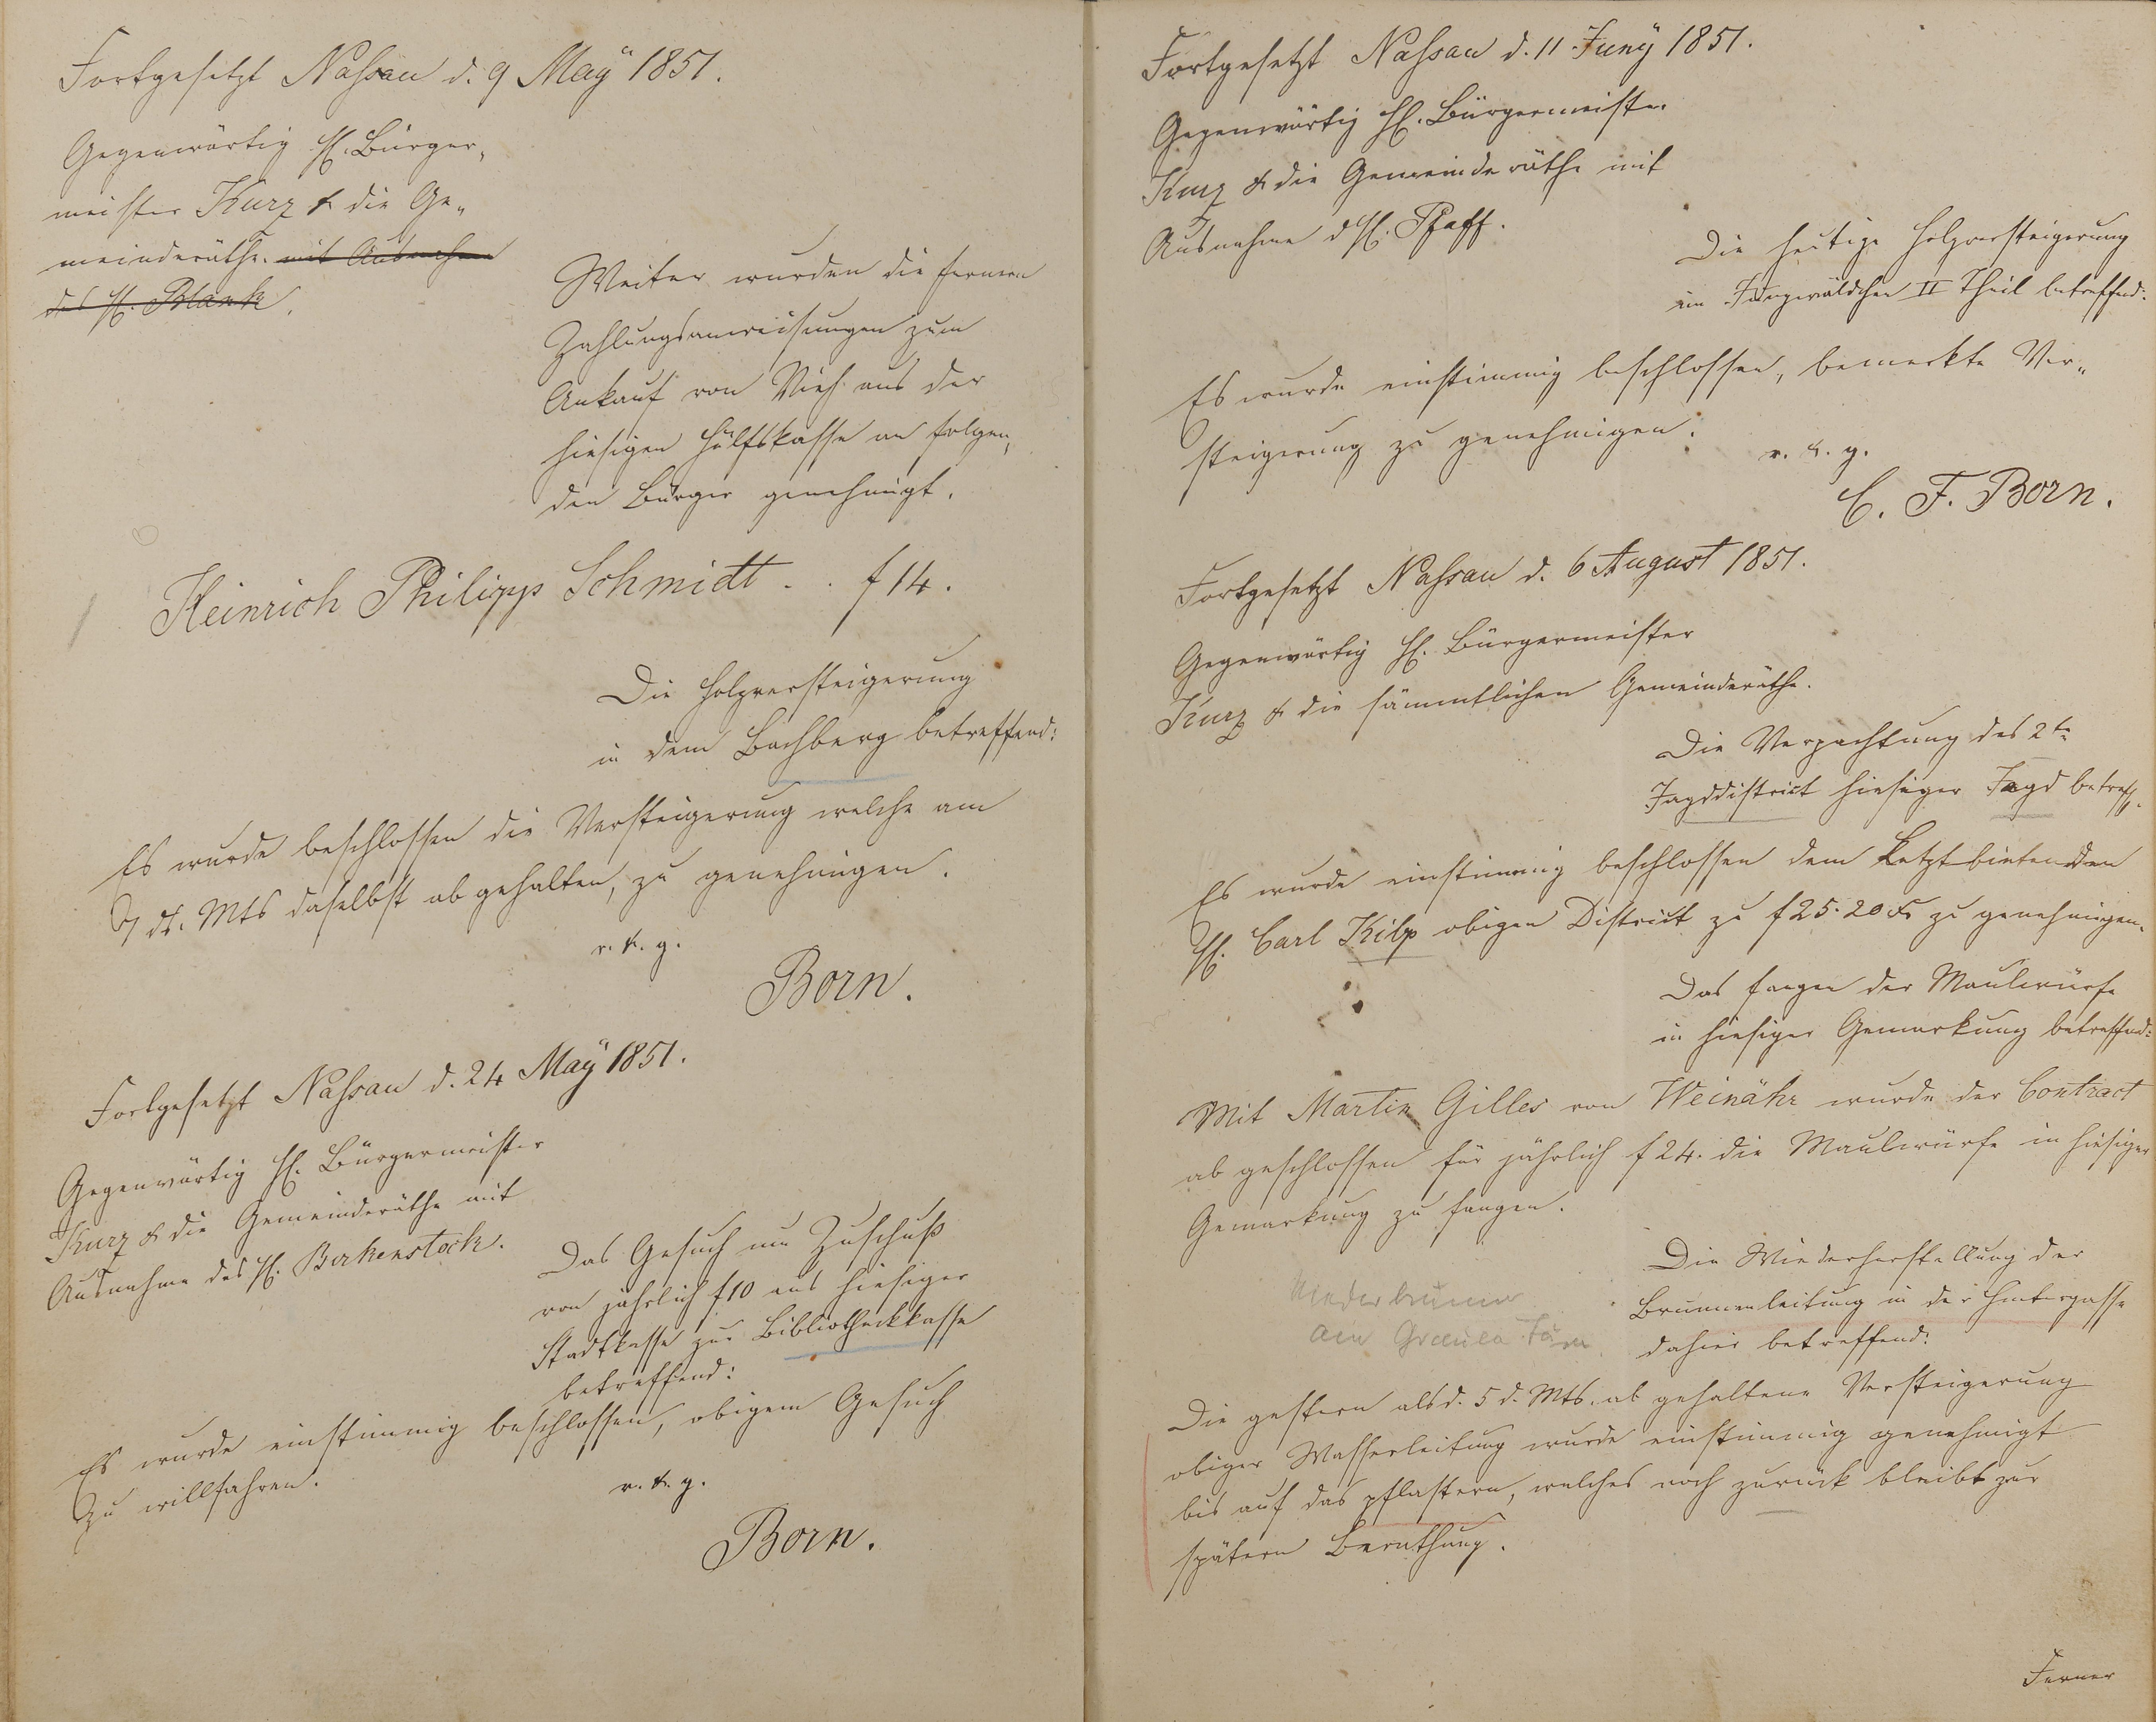 Fortgesetzt Nassau d. 9 Maÿ 1851.
Gegenwärtig H. Bürger„
meister Kurz & die Ge„
meinderäthe. mit Ausnahme
des H. Blank.
Weiter wurden die fernern
Zahlungsanweisungen zum
Ankauf von Vieh aus der
hiesigen Hülfskasse an folgen„
den Bürger genehmigt.
Heinrich Philipp Schmidt . . f 14.
Die Holzversteigerung
in dem Bachberg betreffend:
Es wurde beschlossen die Versteigerung welche am
7 ds. Mts daselbst abgehalten, zu genehmigen.
v. & g.
Born.
Fortgesetzt Nassau d. 24 Maÿ 1851.
Gegenwärtig H. Bürgermeister
Kurz & die Gemeinderäthe mit
Ausnahme des H. Birkenstock.
Das Gesuch um Zuschuß
von jährlich f 10 aus hiesiger
Stadtkasse zur Bibliotheckkasse
betreffend:
Es wurde einstimmig beschlossen, obigem Gesuch
zu willfahren.
v. & g.
Born.
Fortgesetzt Nassau d. 11. Junÿ 1851.
Gegenwärtig H. Bürgermeister
Kurz & die Gemeinderäthe mit
Ausnahme d H. Pfaff.
Die heutige Holzversteigerung
im Jungewäldchen II Theil betreffend:
Es wurde einstimmig beschlossen, bemerkte Ver„
steigerung zu genehmigen.
v. & g.
C. F. Born.
Fortgesetzt Nassau d. 6 August 1851.
Gegenwärtig H. Bürgermeister
Kurz & die sämmtlichen Gemeinderäthe.
Die Verpachtung des 2tn
Jagddistrict hiesiger Jagd betreff.
Es wurde einstimmig beschlossen dem Letztbietenden
H. Carl Kilp obigen District zu f 25. 20 Kr zu genehmigen.
Das fangen der Maulwürfe
in hiesiger Gemarkung betreffend:
Mit Martin Gilles von Weinähr wurde der Contract
abgeschlossen für jährlich f 24. die Maulwürfe in hiesiger
Gemarkung zu fangen.
Die Wiederherstellung der
Brunnenleitung in der Hintergasse
dahier betreffend:
Die gestern als d. 5 d. Mts. abgehaltene Versteigerung
obiger Wasserleitung wurde einstimmig genehmigt
bis auf das pflastern, welches noch zurück bleibt zur
spätern Berathung.
Ferner